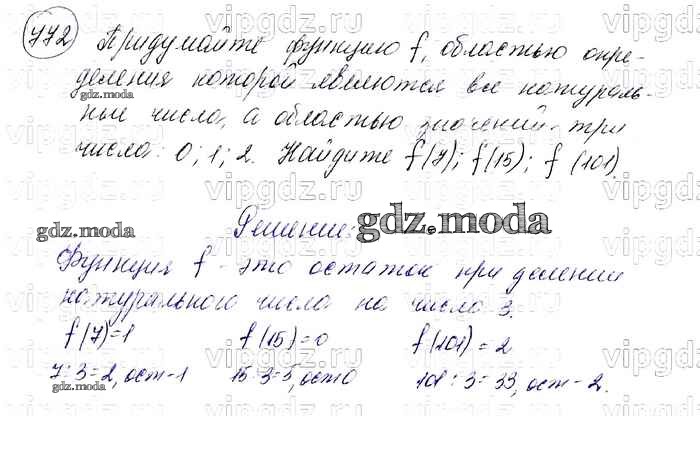 772 Придумайте функцию f, областью опре-
деления которой являются все натураль-
ные числа, а областью значений - три
числа: 0; 1; 2. Найдите f(7); f(15); f(101).
Решение:
Функция f - это остаток при делении
натурального числа на число 3.
f(7)=1 f(15)=0 f(101)=2
7:3=2, ост-1 15:3=5, ост 0 101:3=33, ост-2.
gdz.moda
gdz.moda
gdz.moda
gdz.moda
vipgdz.ru